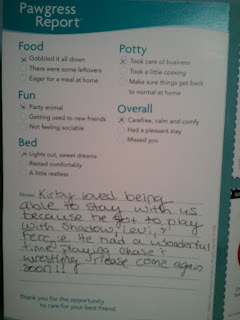 Pawgress
Report
Food
Gobbled it all down
There were some leftovers
Eager for a meal at home
Fun
Party animal
Getting used to new friends
Not feeling sociable
Bed
Lights out, sweet dreams
Rested comfortably
A little restless
Potty
Took care of business
Took a little coaxing
Make sure things get back
to normal at home
Overall
Carefree, calm and comfy
Had a pleasant stay
Missed you
Notes: Kirby loved being
able to stay with us
because he got to play
with Shadow, Levi, &
Percie. He had a wonderful
time playing chase &
wrestling. Please come again
soon!!!
Thank you for the opportunity
to care for your best friend.